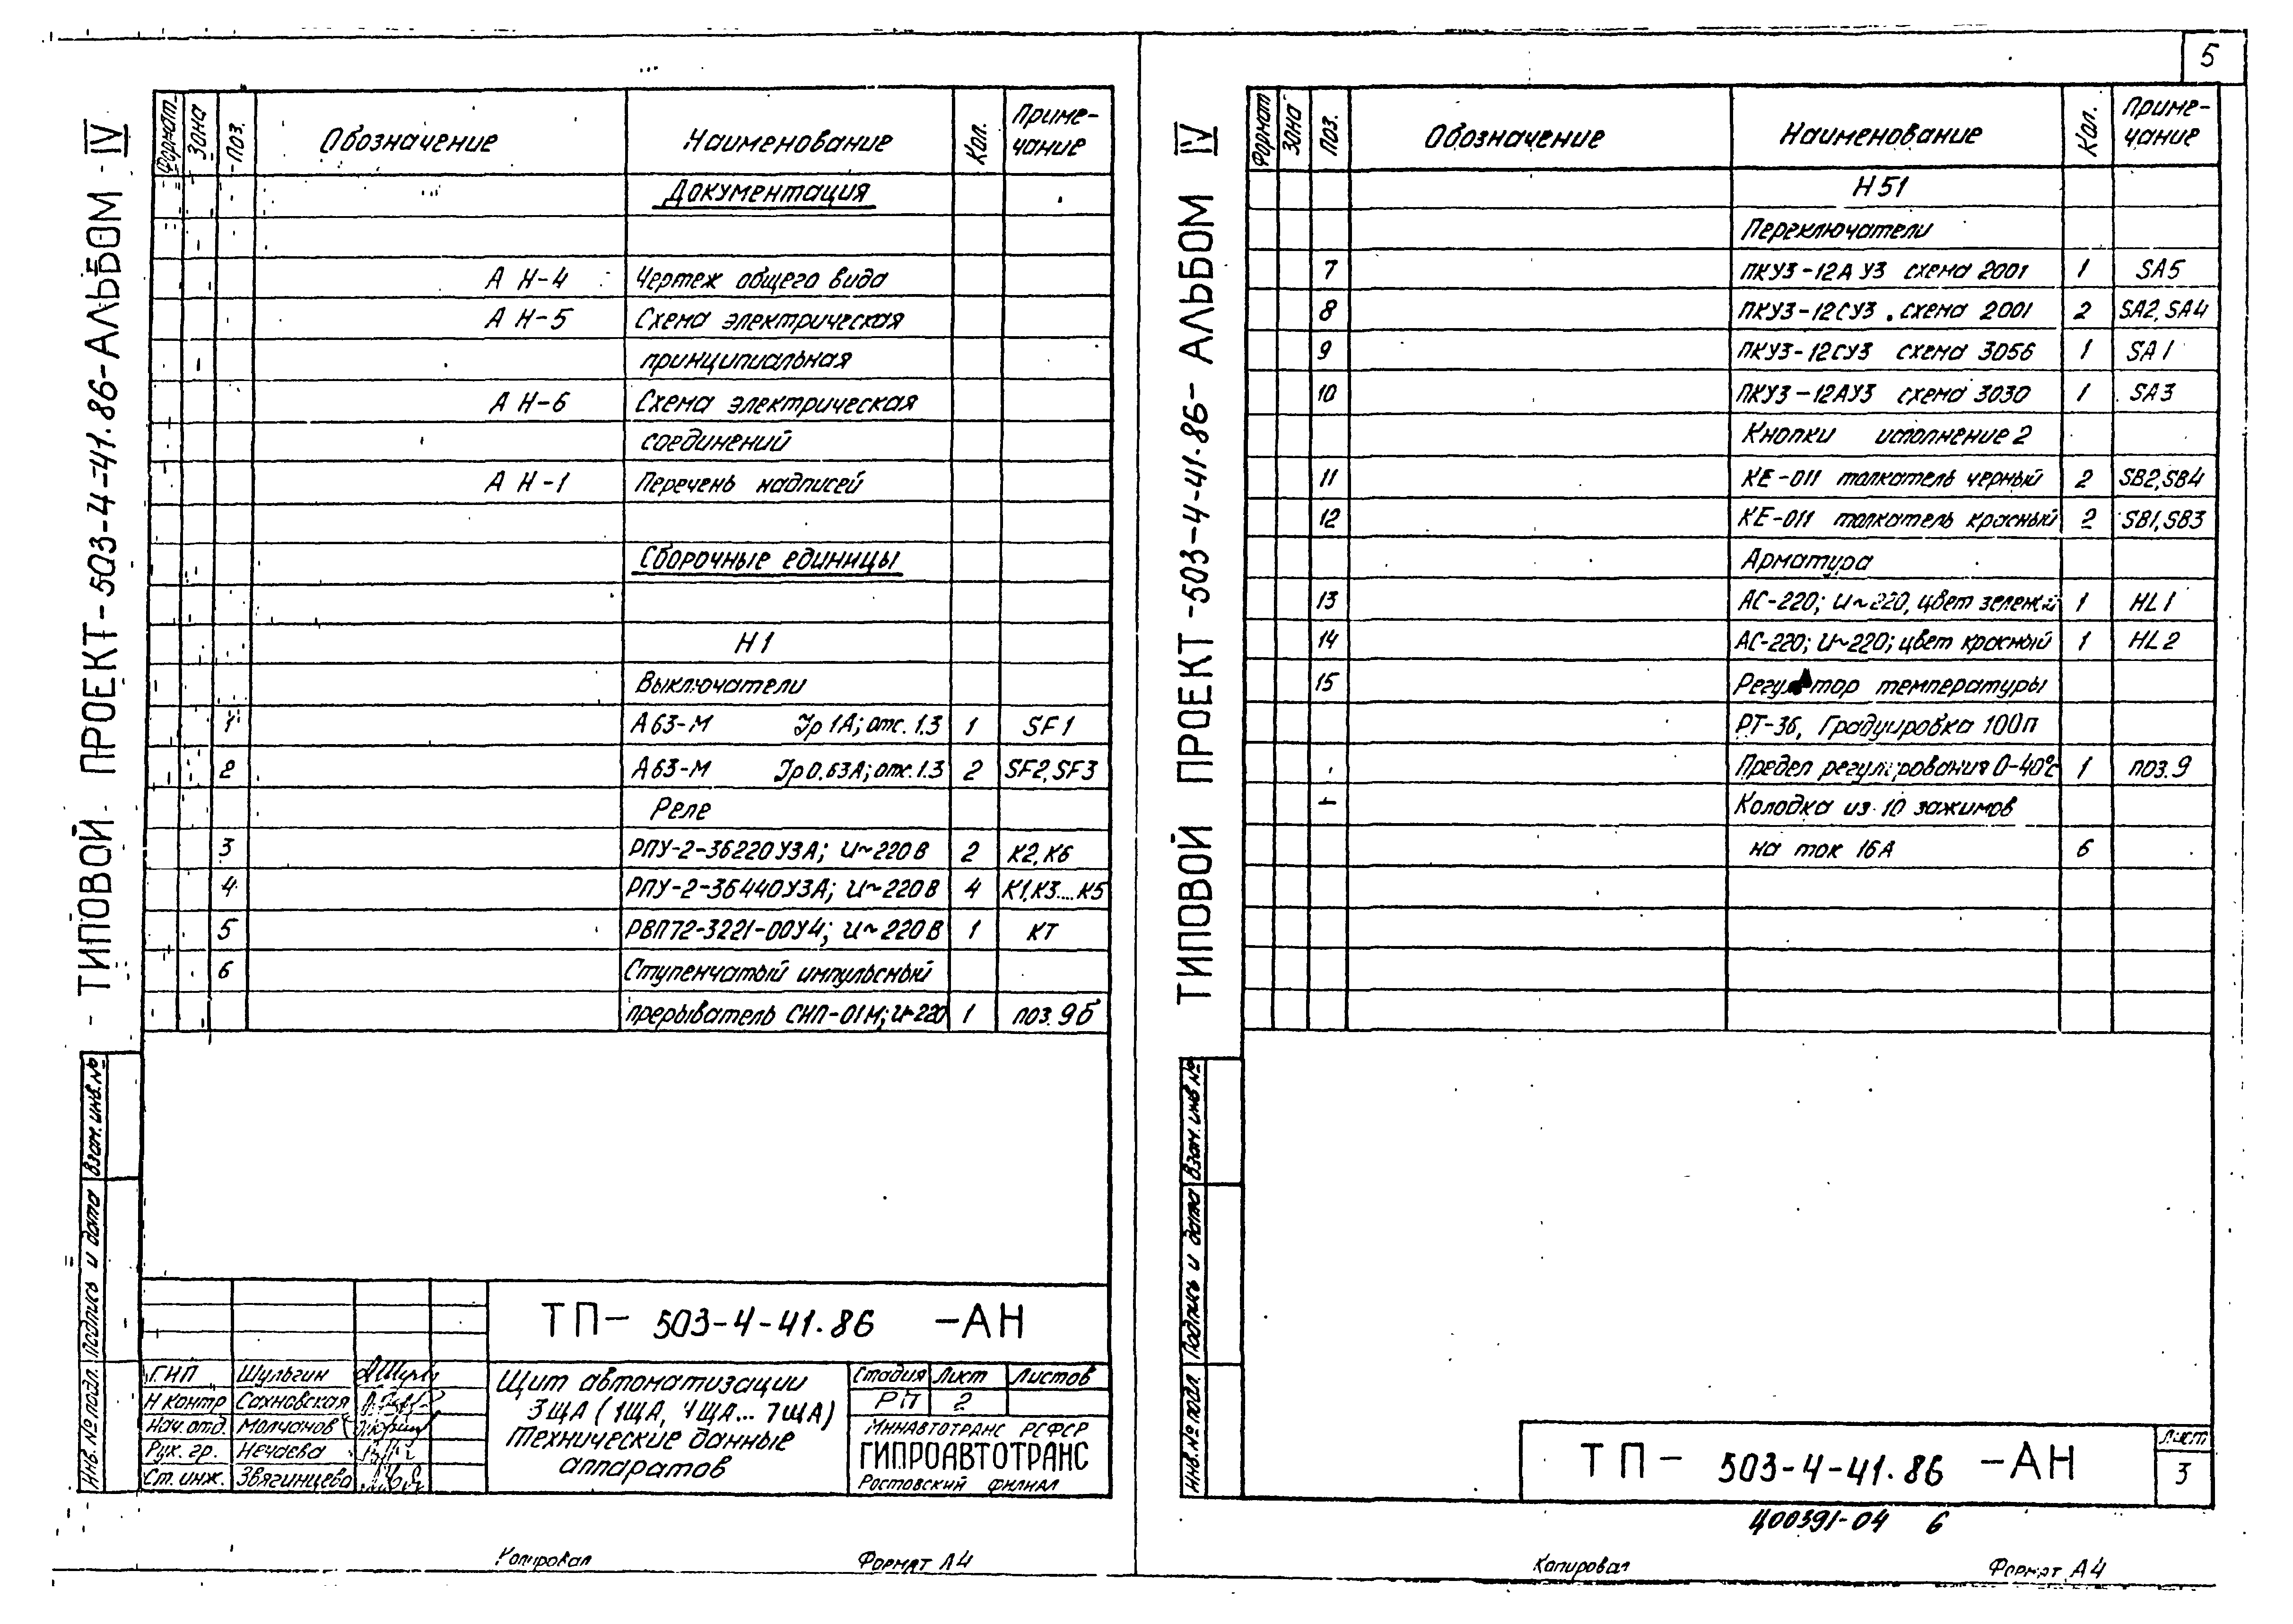 5
ТИПОВОЙ ПРОЕКТ-503-4-41.86-АЛЬБОМ IV
Формат Зона Поз. Обозначение Наименование Кол. Приме-
чание
Документация
А Н-4 Чертеж общего вида
А Н-5 Схема электрическая
принципиальная
А Н-6 Схема электрическая
соединений
А Н-1 Перечень надписей
Сборочные единицы
Н1
Выключатели
1 А63-М Jр 1А; отс. 1.3 1 SF1
2 А63-М Jр 0.63А; отс. 1.3 2 SF2, SF3
Реле
3 РПУ-2-36220У3А; U~220В 2 К2, К6
4 РПУ-2-36440У3А; U~220В 4 К1, К3....К5
5 РВП72-3221-00У4; U~220В 1 КТ
6 Ступенчатый импульсный
прерыватель СИП-01М; U~220 1 поз. 9б
Инв. № подл. Подпись и дата Взам. инв. №
ТП- 503-4-41.86 -АН
ГИП Шульгин
Н контр Сахновская
Нач. отд. Молчанов
Рук. гр. Нечаева
Ст. инж. Звягинцева
Щит автоматизации
3ЩА (1ЩА, 4ЩА... 7ЩА)
Технические данные
аппаратов
Стадия Лист Листов
РП 2
Минавтотранс РСФСР
ГИПРОАВТОТРАНС
Ростовский филиал
Копировал Формат А4
ТИПОВОЙ ПРОЕКТ-503-4-41.86-АЛЬБОМ IV
Формат Зона Поз. Обозначение Наименование Кол. Приме-
чание
Н51
Переключатели
7 ПКУ3-12А У3 схема 2001 1 SA5
8 ПКУ3-12СУ3 схема 2001 2 SA2, SA4
9 ПКУ3-12СУ3 схема 3056 1 SA1
10 ПКУ3-12АУ3 схема 3030 1 SA3
Кнопки исполнение 2
11 КЕ-011 толкатель черный 2 SB2, SB4
12 КЕ-011 толкатель красный 2 SB1, SB3
Арматура
13 АС-220; U~220, цвет зеленый 1 HL1
14 АС-220; U~220; цвет красный 1 HL2
15 Регулятор температуры
РТ-36, Градуировка 100п
Предел регулирования 0-40°С 1 поз. 9
- Колодка из 10 зажимов
на ток 16А 6
Инв. № подл. Подпись и дата Взам. инв №
ТП- 503-4-41.86 -АН
Лист
3
Ц00391-04 6
Копировал Формат А4